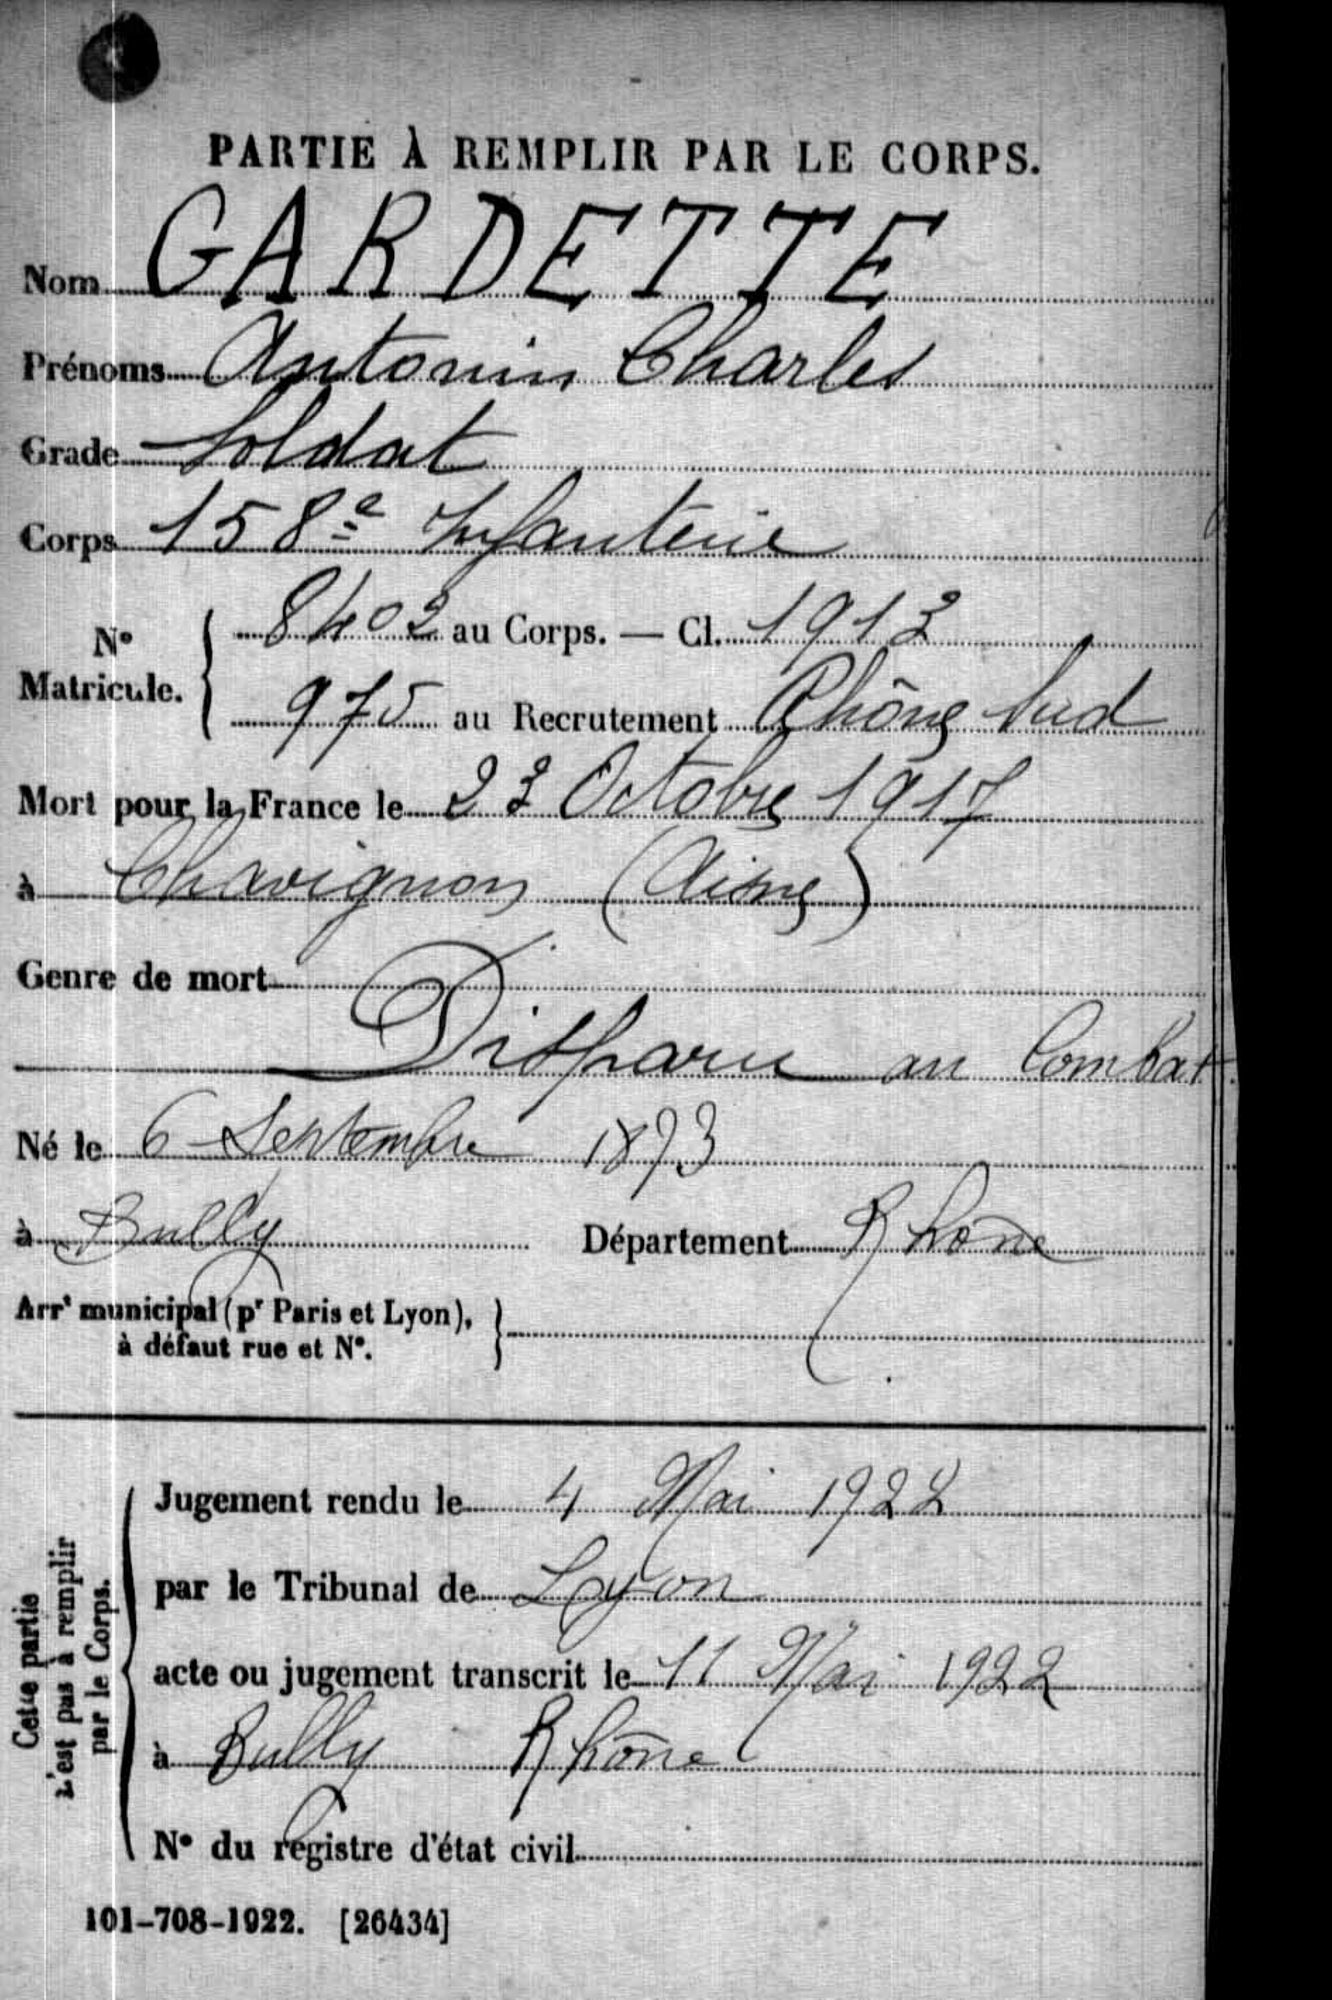 PARTIE À REMPLIR PAR LE CORPS.
Nom GARDETTE
Prénoms Antonin Charles
Grade Soldat
Corps 158e Infanterie
N° Matricule. { 8402 au Corps. — Cl. 1913
975 au Recrutement Rhône Sud
Mort pour la France le 23 Octobre 1917
à Chavignon (Aisne)
Genre de mort
Disparu au Combat
Né le 6 Septembre 1893
à Bully Département Rhône
Arrt municipal (pr Paris et Lyon), à défaut rue et N°. }
Cette partie n'est pas à remplir par le Corps.
Jugement rendu le 4 Mai 1922
par le Tribunal de Lyon
acte ou jugement transcrit le 11 Mai 1922
à Bully Rhône
N° du registre d'état civil
101-708-1922. [26434]